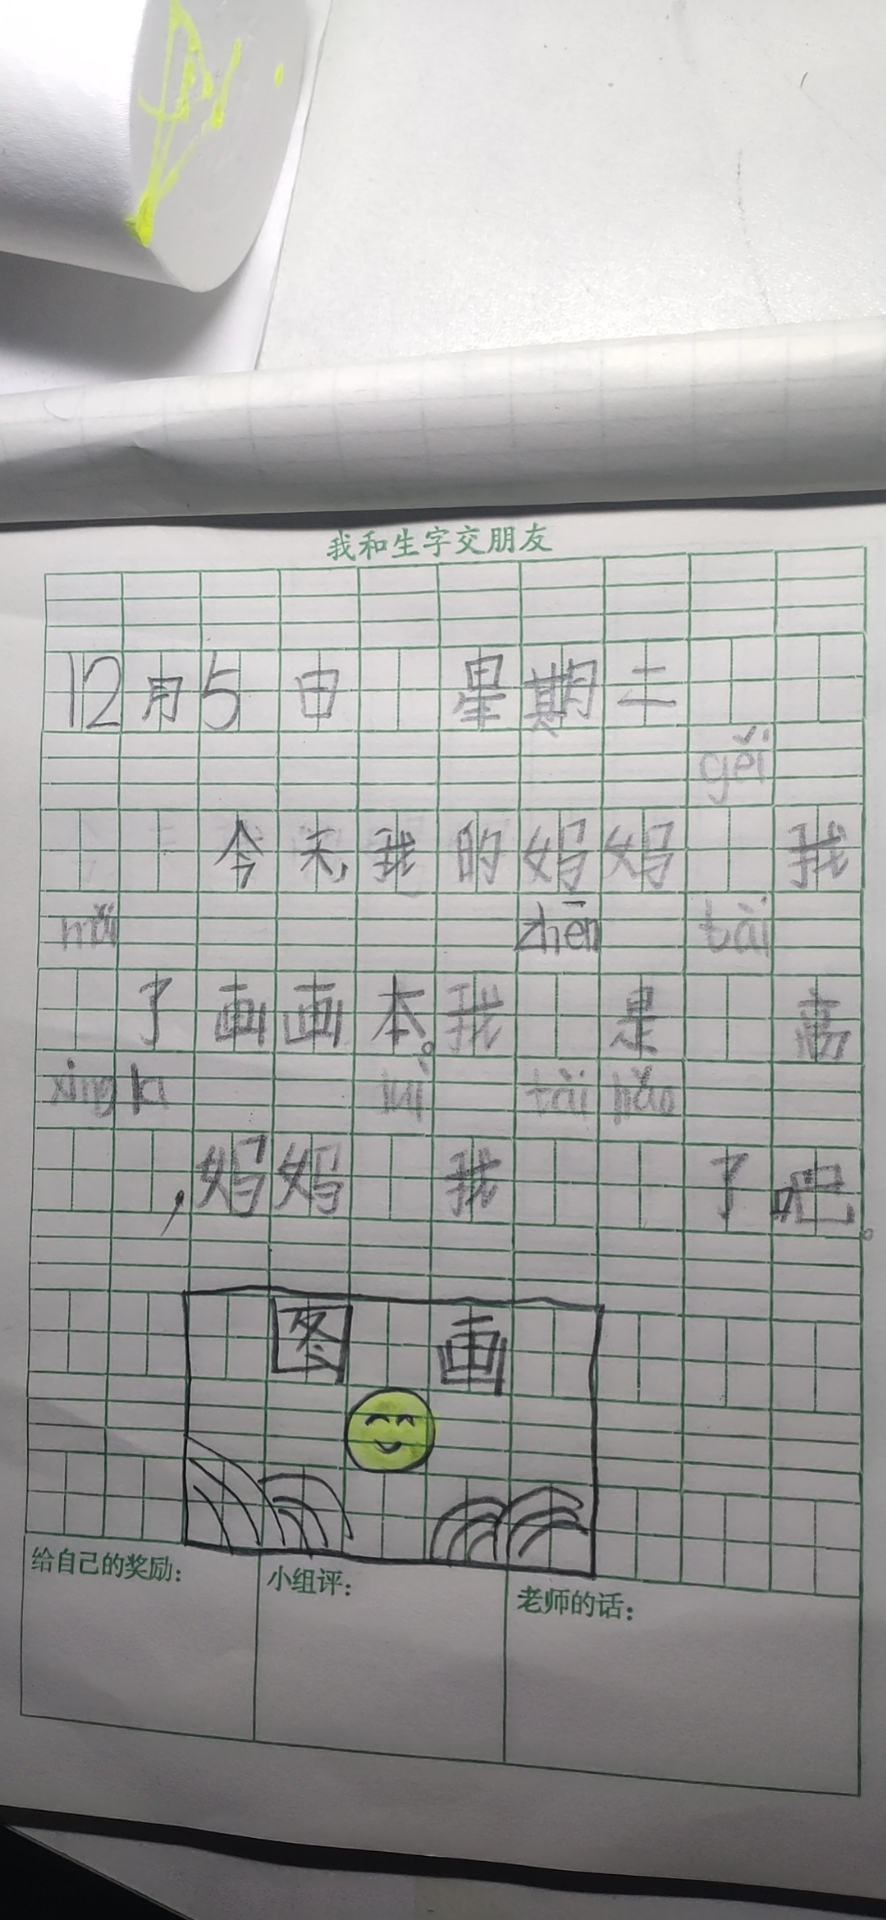 我和生字交朋友
12月5日 星期二
gěi
今天,我的妈妈 我
mǎi zhēn tài
了画画本。我 是 高
xìng la duì tài hǎo
,妈妈 我 了吧。
图 画
给自己的奖励: 小组评: 老师的话: